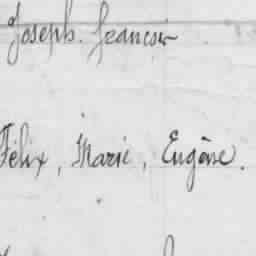 Joseph. Francois
Félix, Marie, Eugène.